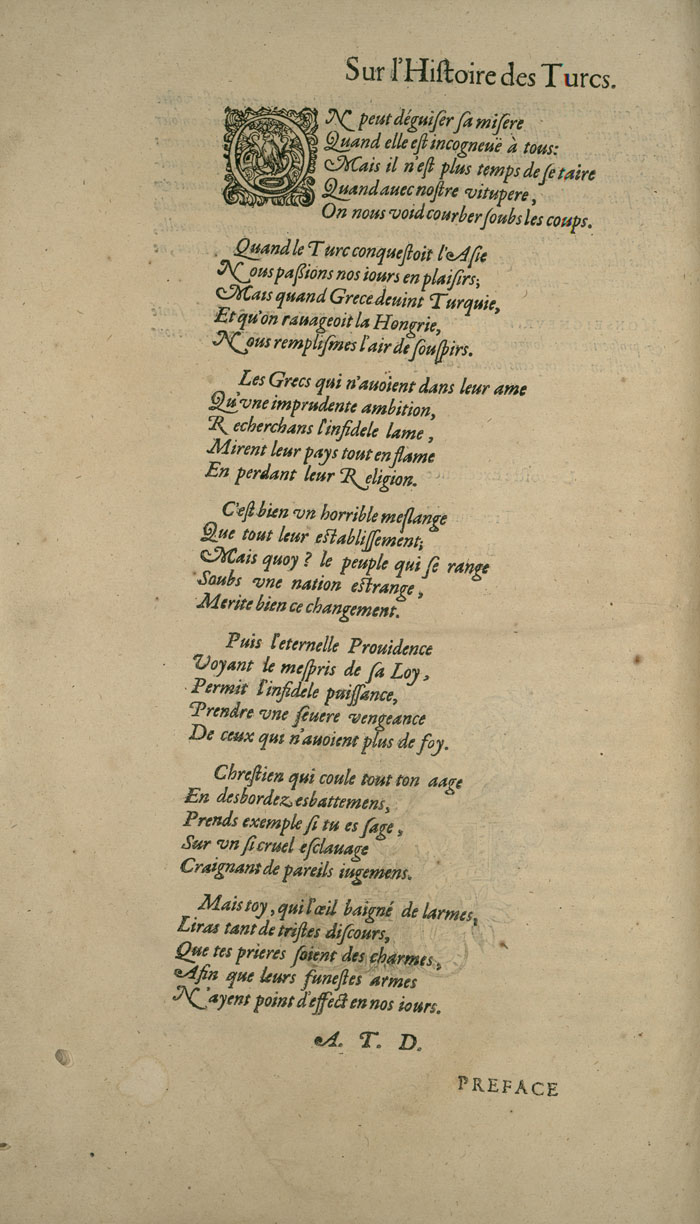 Sur l'Histoire des Turcs.
ON peut déguiser sa misere
Quand elle est incogneuë à tous:
Mais il n'est plus temps de se taire
Quand auec nostre vitupere,
On nous void courber soubs les coups.
Quand le Turc conquestoit l'Asie
Nous passions nos iours en plaisirs;
Mais quand Grece deuint Turquie,
Et qu'on rauageoit la Hongrie,
Nous remplismes l'air de souspirs.
Les Grecs qui n'auoient dans leur ame
Qu'vne imprudente ambition,
Recherchans l'infidele lame,
Mirent leur pays tout en flame
En perdant leur Religion.
C'est bien vn horrible meslange
Que tout leur establissement;
Mais quoy? le peuple qui se range
Soubs vne nation estrange,
Merite bien ce changement.
Puis l'eternelle Prouidence
Voyant le mespris de sa Loy,
Permit l'infidele puissance,
Prendre vne seuere vengeance
De ceux qui n'auoient plus de foy.
Chrestien qui coule tout ton aage
En desbordez esbattemens,
Prends exemple si tu es sage,
Sur vn si cruel esclauage
Craignant de pareils iugemens.
Mais toy, qui l'œil baigné de larmes,
Liras tant de tristes discours,
Que tes prieres soient des charmes,
Afin que leurs funestes armes
N'ayent point d'effect en nos iours.
A. T. D.
PREFACE